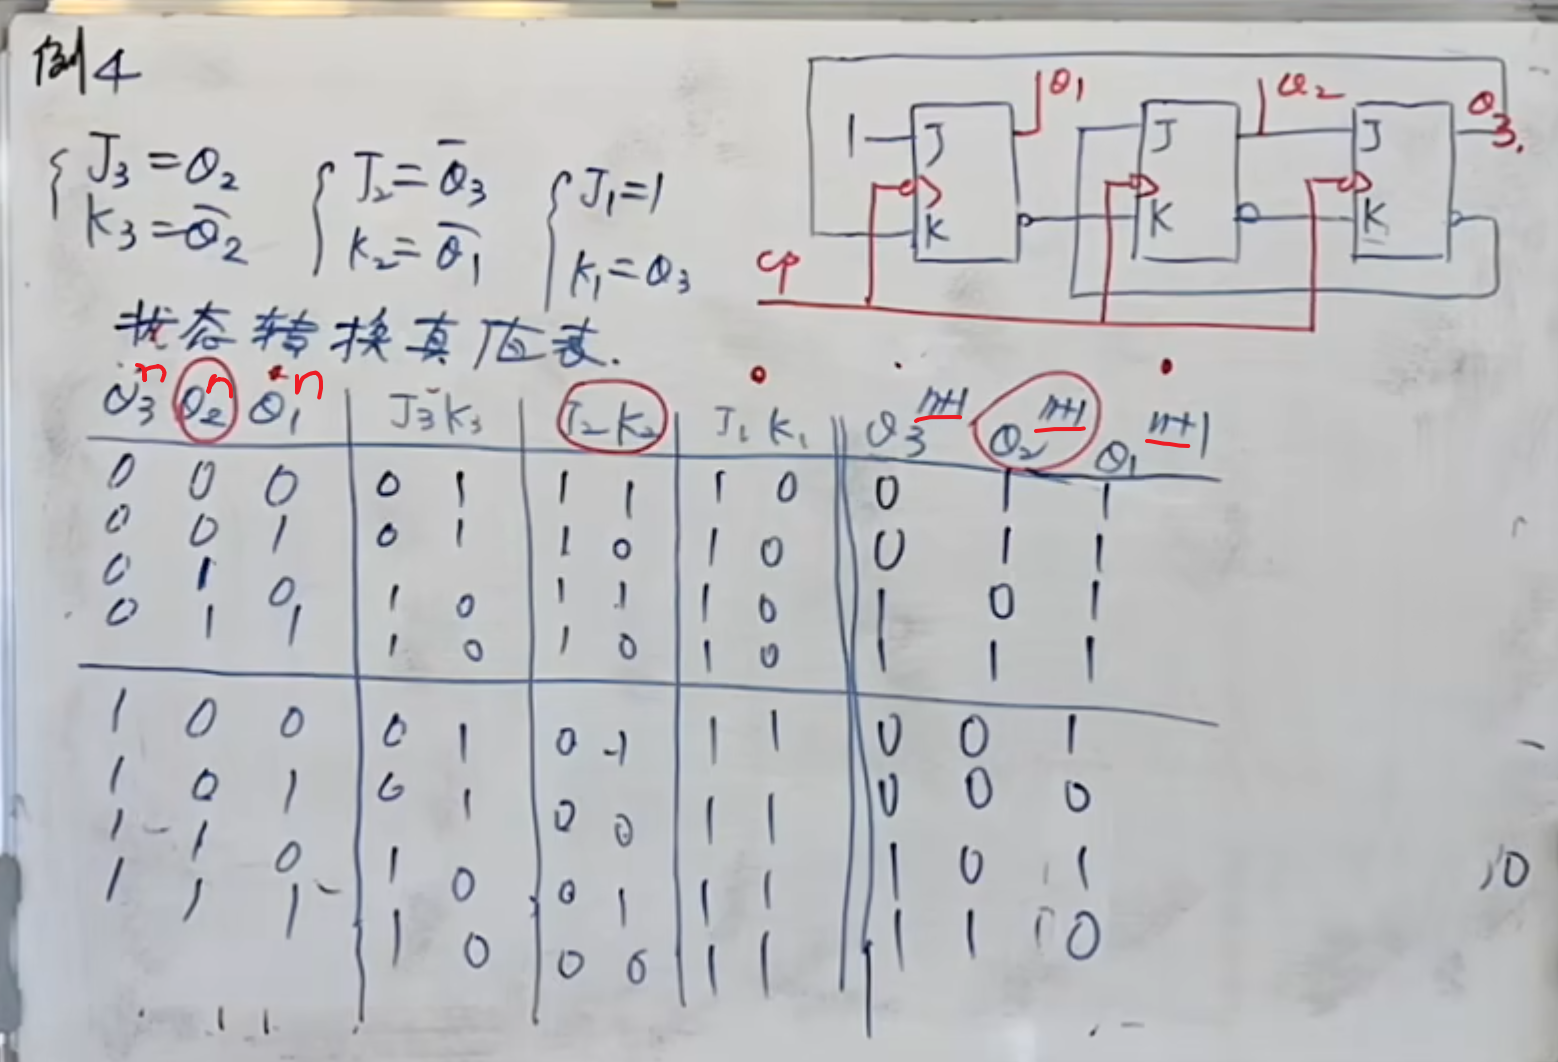 例4
J3=Q2 J2=Q̄3 J1=1
K3=Q̄2 K2=Q̄1 K1=Q3
1 J K Q1 J K Q2 J K Q3
CP
状态转换真值表.
Q3ⁿ Q2ⁿ Q1ⁿ J3 K3 J2 K2 J1 K1 Q3ⁿ⁺¹ Q2ⁿ⁺¹ Q1ⁿ⁺¹
0 0 0 0 1 1 1 1 0 0 1 1
0 0 1 0 1 1 0 1 0 0 1 1
0 1 0 1 0 1 1 1 0 1 0 1
0 1 1 1 0 1 0 1 0 1 1 1
1 0 0 0 1 0 1 1 1 0 0 1
1 0 1 0 1 0 0 1 1 0 0 0
1 1 0 1 0 0 1 1 1 1 0 1
1 1 1 1 0 0 0 1 1 1 1 0